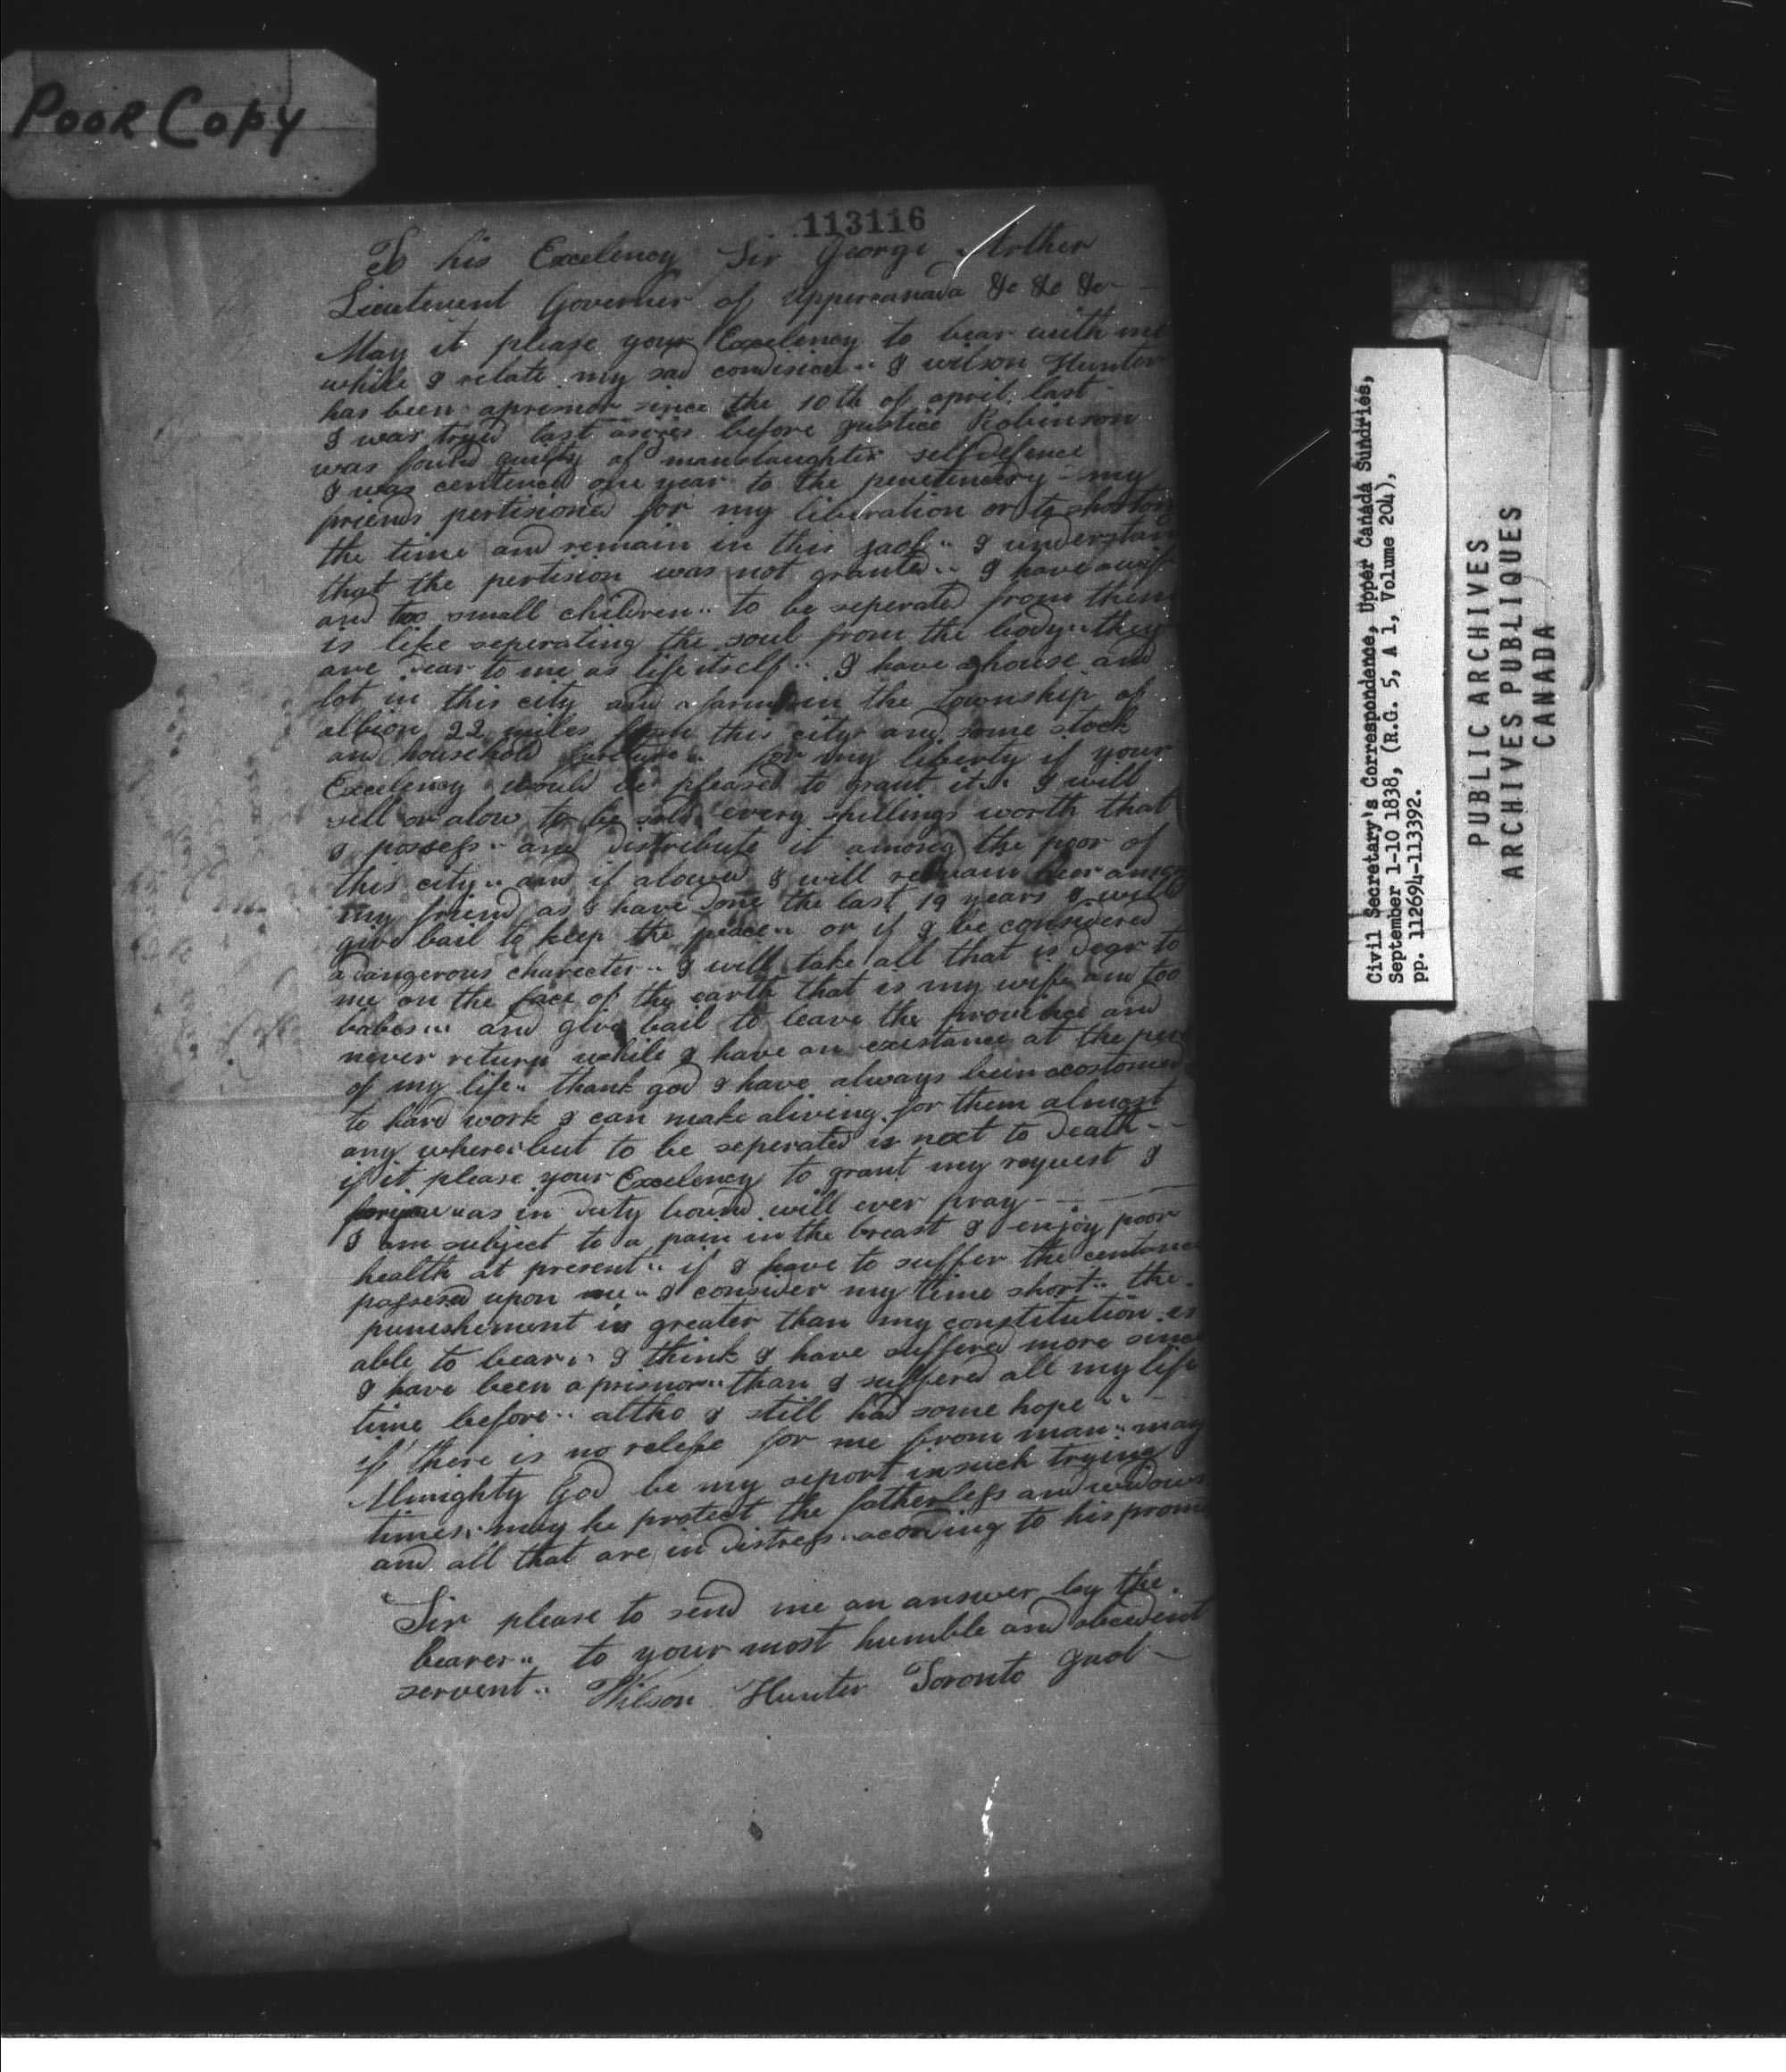 Poor Copy
113116
To his Excelency Sir George Arther
Lieutenent Governer of Uppercanada &c &c &c
May it please your Excelency to bear with me
while I relate my sad condision I wilson Hunter
has been aprisnor since the 10th of april last
I was tryed last asizes before justice Robinson
was found guilty of manslaughter selfdefence
I was centenced one year to the penetendery my
friends pertisioned for my liberation or to shorton
the time and remain in this jaol I understan
that the pertision was not granted I have a wif
and too small children to be seperated from them
is like seperating the soul from the body they
are dear to me as life itself I have a house and
lot in this city and a farm in the township of
albion 22 miles from this city and some stock
and household furniture for my liberty if your
Excelency would be pleased to grant it I will
sell or alow to be sold every shillings worth that
I possess and distribute it among the poor of
this city and if alowed I will remain hear among
my friend as I have done the last 19 years I will
give bail to keep the peace or if I be considered
a dangerous charecter I will take all that is dear to
me on the face of the earth that is my wife and too
babes and give bail to leave the province and
never return while I have an existance at the per
of my life thank god I have always bein acostomed
to hard work I can make aliving for them almost
any where but to be seperated is next to death
if it please your Excelency to grant my request I
as in duty bound will ever pray
I am subject to a pain in the breast I enjoy poor
health at present if I have to suffer the centance
passesed upon me I consider my time short the
puneshement is greater than my constitution is
able to bear I think I have suffered more since
I have been a prisnor than I suffered all my life
time before altho I still had some hope
if there is no relefe for me from man may
Almighty God be my seport in such trying
times may he protect the fatherless and widows
and all that are in distress acording to his promis
Sir please to send me an answer by the
bearer to your most humble and obedent
servent Wilson Hunter Toronto gaol
Civil Secretary's Correspondence, Upper Canada Sundries,
September 1-10 1838, (R.G. 5, A 1, Volume 204),
pp. 112694-113392.
PUBLIC ARCHIVES
ARCHIVES PUBLIQUES
CANADA